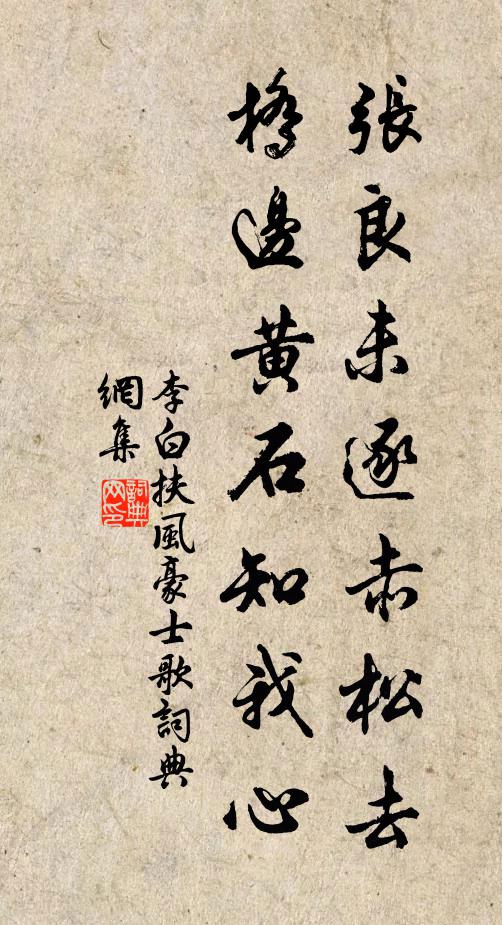 張良未逐赤松去
橋邊黄石知我心
李白扶風豪士歌詞典
網集
詞典
网印